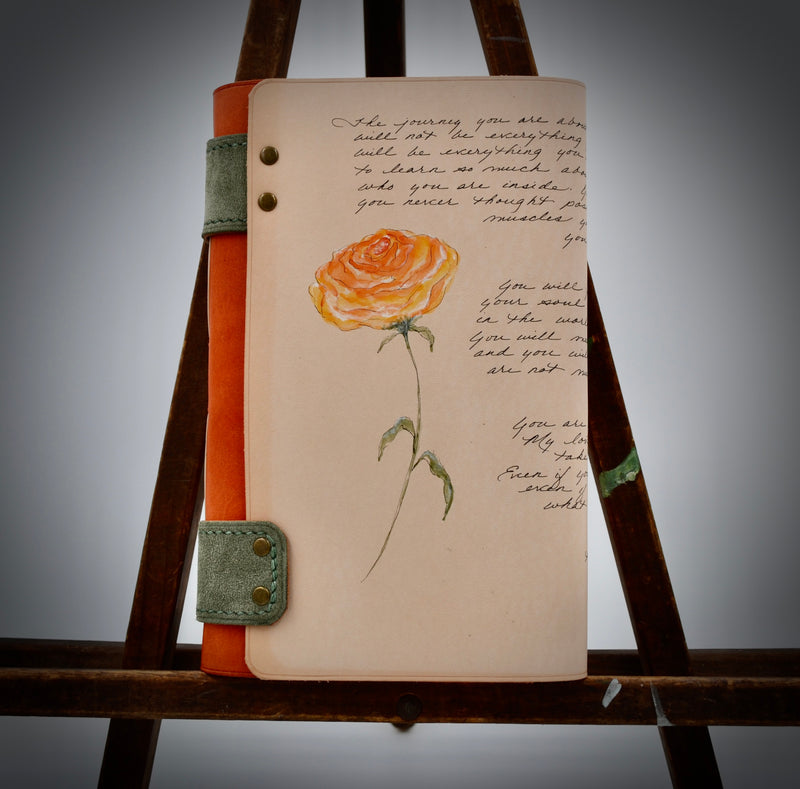 The journey you are abou
will not be everything
will be everything you
to learn so much abou
who you are inside. y
you never thought pos
muscles y
you
you will
your soul
in the wor
you will m
and you wi
are not m
you are
My lo
take
Even if yo
even if
what